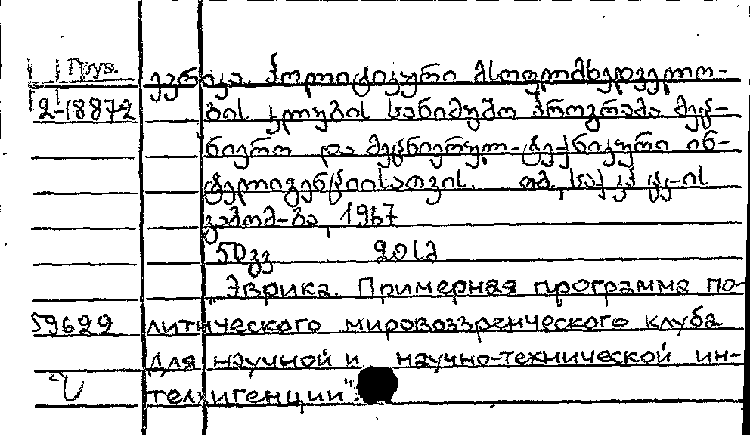 Груз. ევრიკა. პოლიტიკური მსოფლმხედველო-
2-18872 ბის კლუბის სანიმუშო პროგრამა მეც-
ნიერო და მეცნიერულ-ტექნიკური ინ-
ტელიგენციისათვის. თბ., საქ. კპ ცკ-ის
გამომ-ბა, 1967
50 გვ 20 სმ
"Эврика. Примерная программа по-
59622 литического мировоззренческого клуба
для научной и научно-технической ин-
теллигенции".